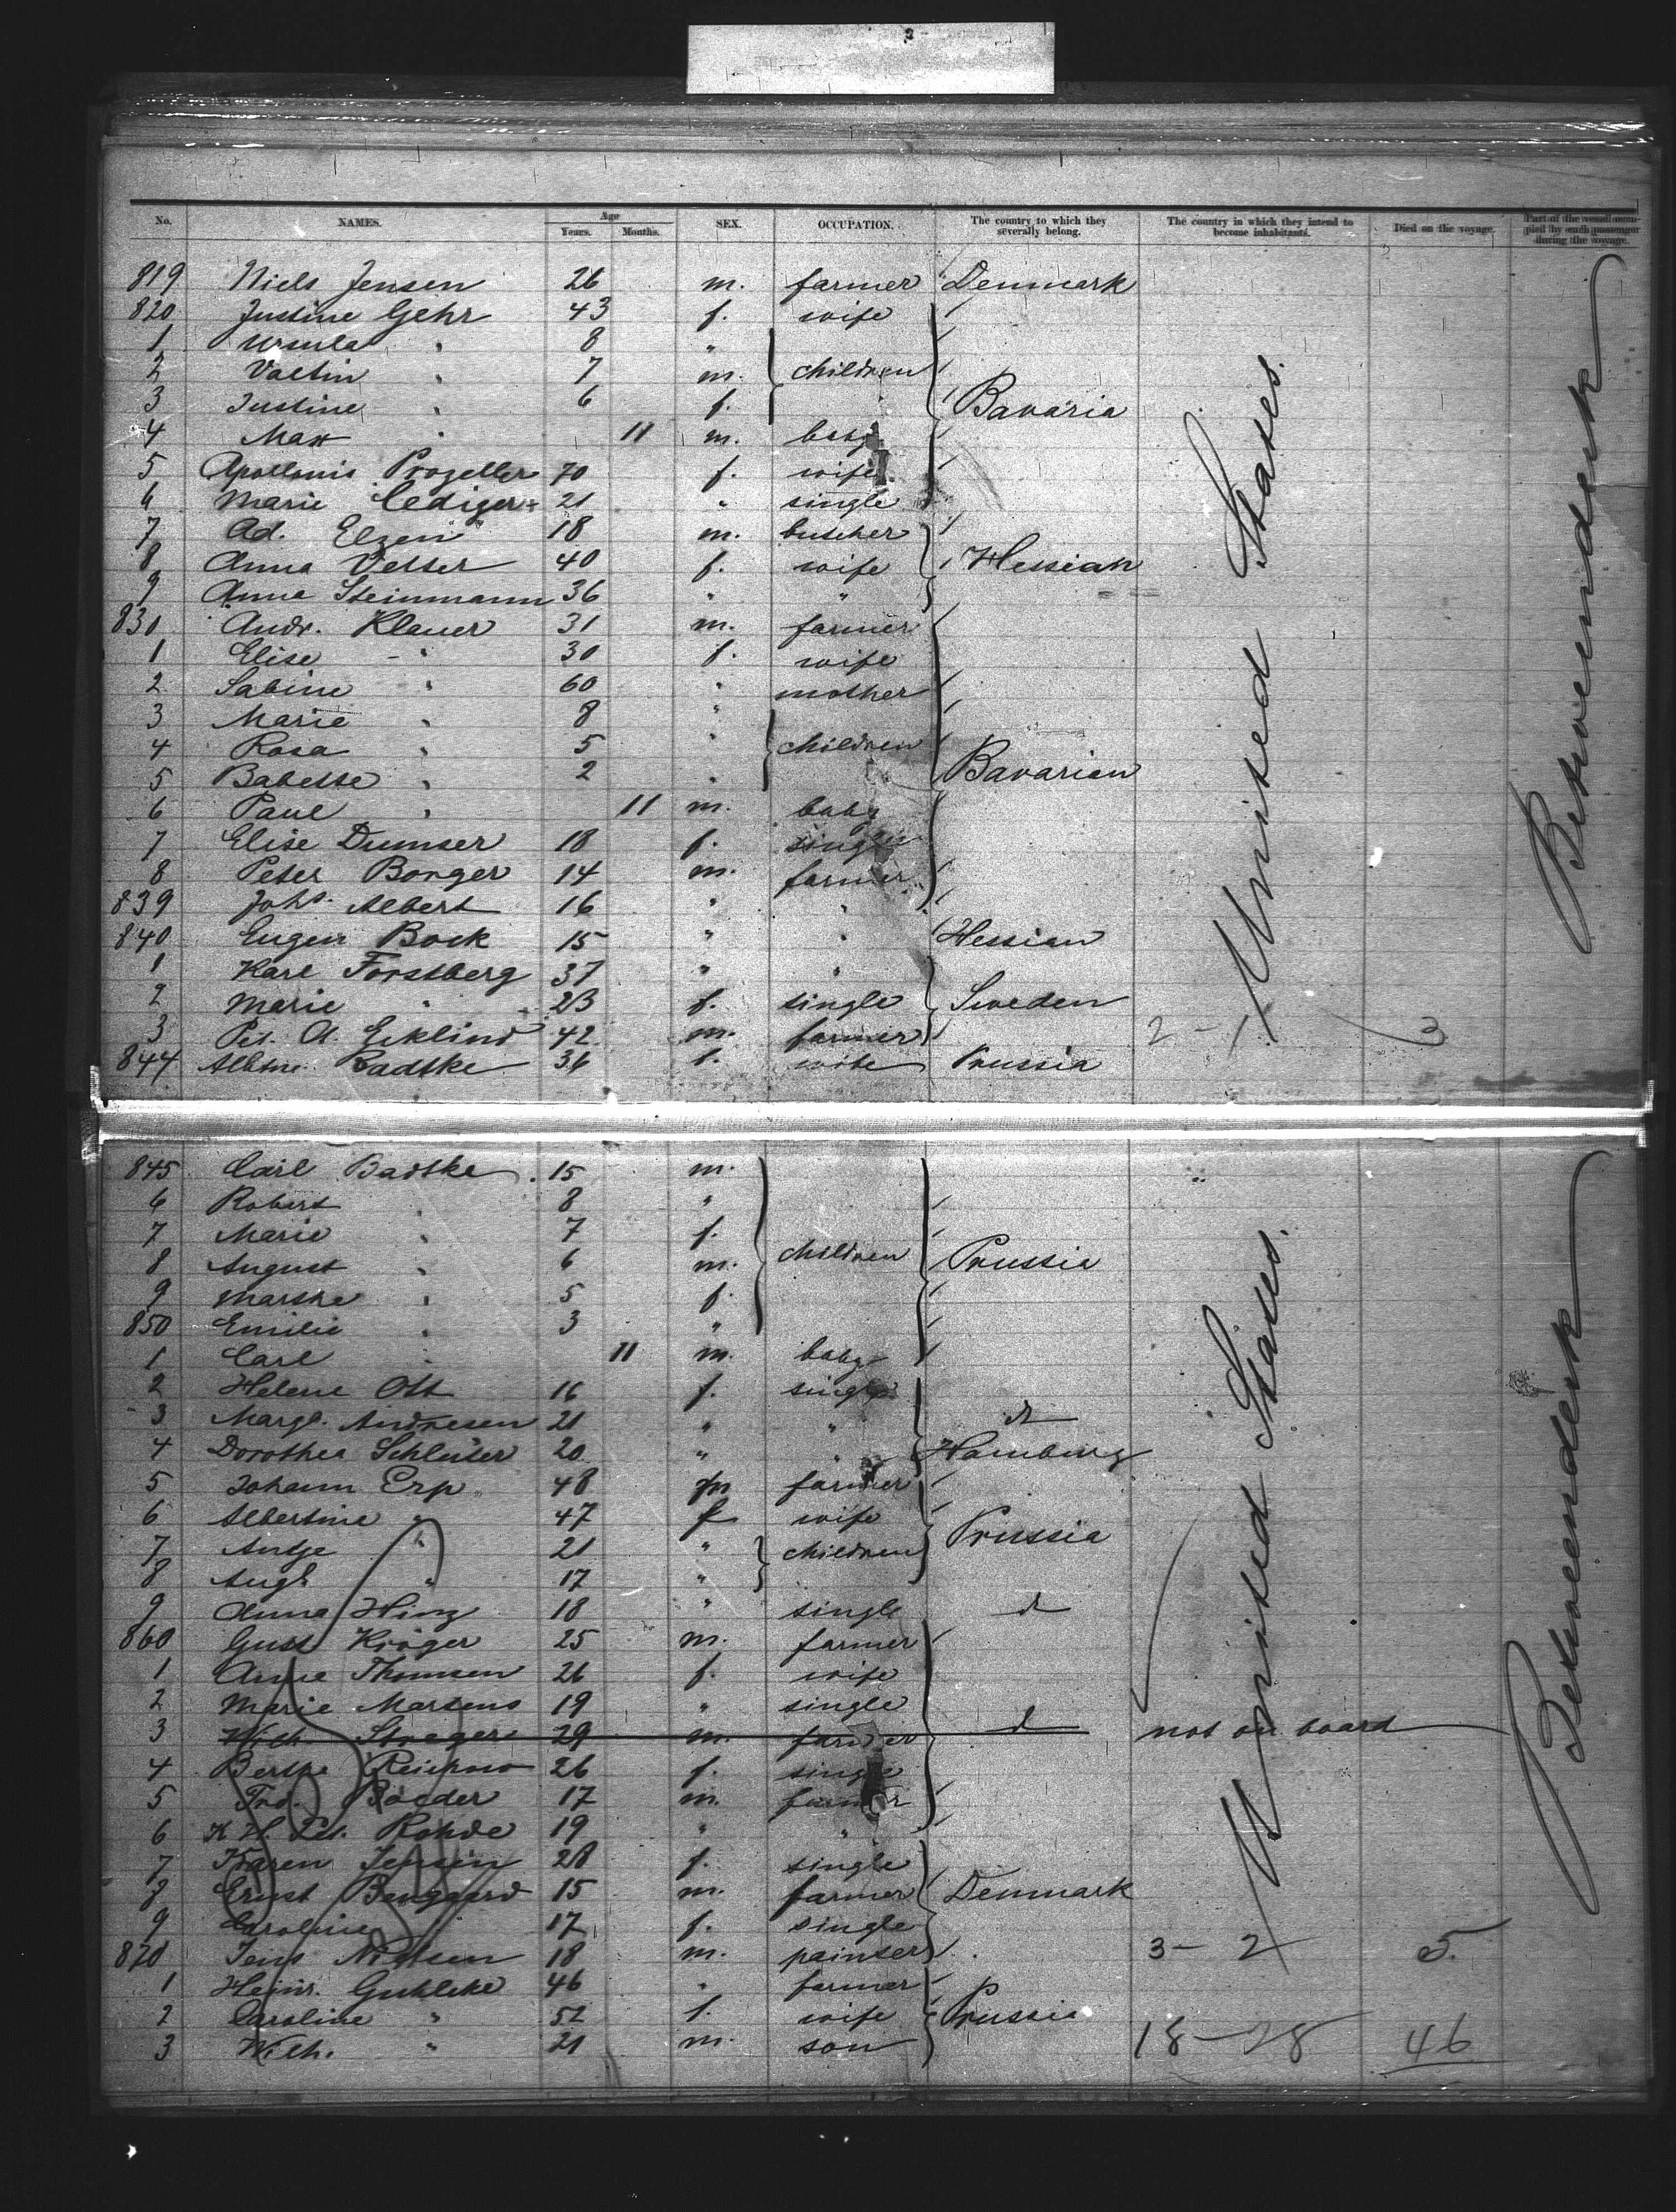 No. NAMES. Age Years. Months. SEX. OCCUPATION. The country to which they severally belong. The country in which they intend to become inhabitants. Died on the voyage. Part of the vessel occupied by each passenger during the voyage.
819 Niels Jensen 26 m. farmer Denmark
820 Justine Gehr 43 f. wife
1 Ursula " 8 "
2 Valtin " 7 m. children
3 Justine " 6 f. Bavaria
4 Max " 11 m. baby
5 Apollonis 70 f. wife
6 Marie 21 " single
7 Ad. Elzen 18 m. butcher
8 Anna Vetter 40 f. wife Hessian
9 Anna Steinmann 36 " "
830 Andr. Klauer 31 m. farmer
1 Elise " 30 f. wife
2 Sabine " 60 " mother
3 Marie " 8 "
4 Rosa " 5 " children
5 Babette " 2 " Bavarian
6 Paul " 11 m. baby
7 Elise Dumser 18 f. single
8 Peter Borger 14 m. farmer
839 Johs. Albert 16 " "
840 Eugen Bock 15 " " Hessian
1 Karl Forstberg 37 " "
2 Marie " 23 f. single Sweden
3 Pet. A. Ecklind 42 m. farmer 2 - 1 3
844 Albtne. Radtke 36 f. wife Prussia
United States.
Betweendeck
845 Carl Badtke 15 m.
6 Robert " 8 "
7 Marie " 7 f.
8 August " 6 m. children Prussia
9 Martha " 5 f.
850 Emilie " 3 "
1 Carl " 11 m. baby
2 Helene Ott 16 f. single
3 Margt. Andresen 21 " " d
4 Dorothea Schlüter 20 " " Hamburg
5 Johann Erp 48 m farmer
6 Albertine " 47 f wife Prussia
7 Antje " 21 " children
8 Augt. " 17 "
9 Anna Hinz 18 " single d
860 Gust Kröger 25 m. farmer
1 Anna Thomsen 26 f. wife
2 Marie Martens 19 " single
3 Wilh. 29 m. farmer d not on board
4 Bertha 26 f. single
5 Boeder 17 m. farmer
6 K. H. Pet. Rohde 19 " "
7 Karen Jensen 28 f. single
8 Ernst Bengaard 15 m. farmer Denmark
9 Caroline " 17 f. single
870 Jens Nielsen 18 m. painter 3 - 2 5.
1 Heinr. Guhlcke 46 " farmer
2 Caroline " 52 f. wife Prussia
3 Wilh. " 21 m. son 18 - 28 46
United States.
Betweendeck